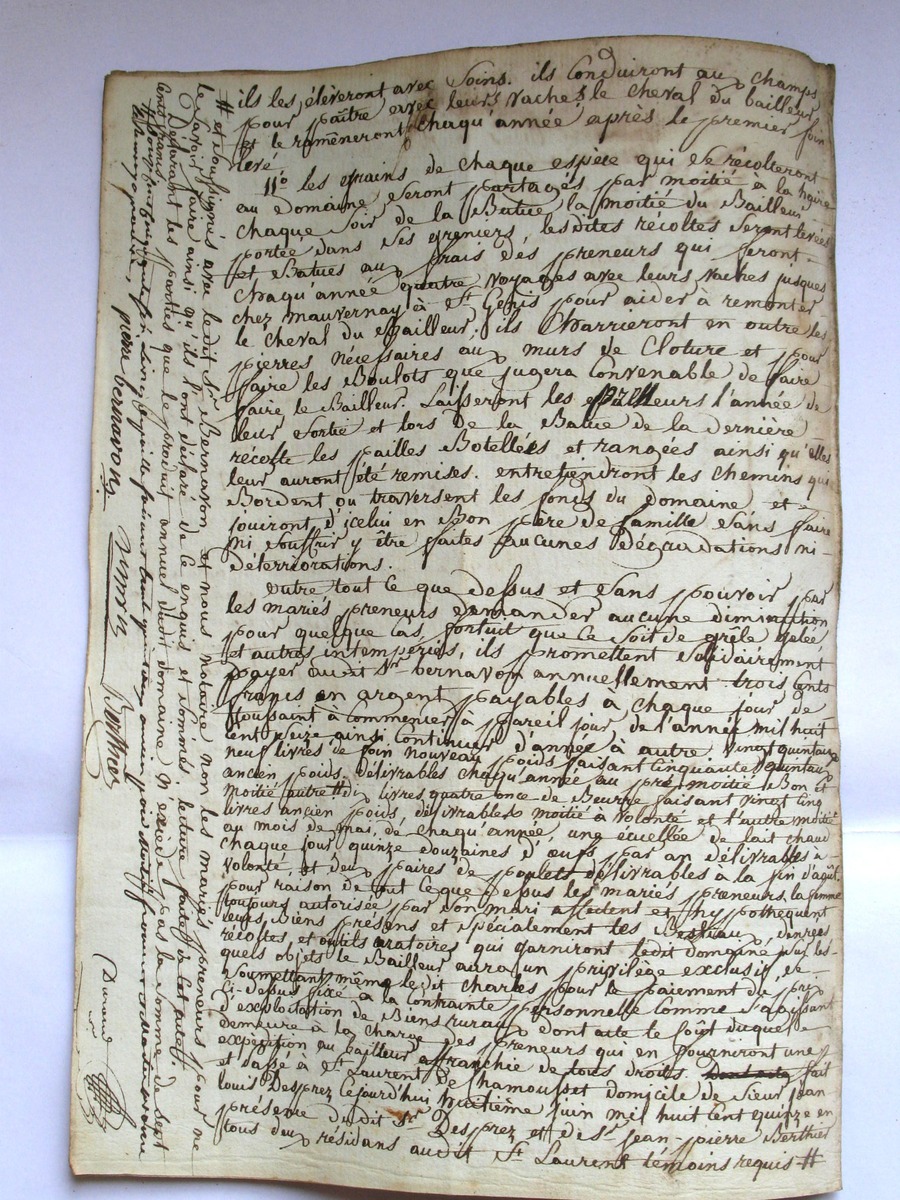 ils les élèveront avec soins. ils Conduiront au champs
pour paître avec leurs vaches le cheval du bailleur
et le ramèneront chaqu'année après le premier foin
levé.
11.o les grains de chaque espèce qui se récolteront
au Domaine seront partagés par moitié à la
chaque soir de la Batue la moitié du Bailleur
portée dans ses greniers, lesdites récoltes seront levées
et Batues au frais des preneurs qui feront
chaqu'année quatre voyages avec leurs vaches jusques
chez mauvernay à St Genis pour aider à remonter
le cheval du Bailleur, ils Charrieront en outre les
pierres nécessaires aux murs de Cloture et pour
faire les Boulots que jugera Convenable de faire
faire le Bailleur. Laisseront les l'année de
leur sortie et lors de la Batue de la dernière
récolte les pailles Botellées et rangées ainsi qu'elles
leur auront été remises. entretiendront les chemins qui
Bordent ou traversent les fonds du domaine et
jouiront d'icelui en Bon père de famille sans faire
ni souffrir y être faites aucunes Dégradations ni
déteriorations.
outre tout ce que dessus et sans pouvoir par
les mariés preneurs demander aucune diminution
pour quelque cas fortuit que ce soit de grêle gelée
et autres intempéries, ils promettent solidairement
payer audit Sr bernavon annuellement trois cents
francs en argent payables à chaque jour de
toussaint à commencer à pareil jour de l'année mil huit
cent seize ainsi continuer d'année à autre vingt quintaux
neuf livres de foin nouveau poids faisant Cinquante quintaux
ancien poids. délivrables chaqu'année au pré, moitié Bon et
moitié autre. dix livres quatre once de Beurre faisant vingt cinq
livres ancien poids, délivrables moitié à volonté et l'autre moitié
au mois de mai, de chaqu'année, une écuellée de lait chaud
chaque jour quinze douzaines d'œufs par an délivrables à
volonté, et deux paires de poulets délivrables à la fin d'août.
pour raison de tout ce que dessus les mariés preneurs, la femme
toujours autorisée par son mari affectent et hypothequent
leurs Biens présens et spécialement les Bestiaux, denrées
récoltes et outils aratoires qui garniront ledit domaine, sur les-
quels objets le Bailleur aura un privilège exclusif, se
soumettant même ledit charles pour le paiement du prix
ci-dessus fixé à la contrainte personnelle comme s'agissant
d'exploitation de Biens ruraux dont acte le coût duquel
demeure à la charge des preneurs qui en fourniront une
expedition au bailleur affranchie de tous droits. fait
et passé à St Laurent de Chamousset domicile de sieur jean
louis Desprez Cejourd'hui huitième juin mil huit Cent quinze en
présence dudit Sr Desprez et de sr jean-pierre Berthier
tous deux résidans audit St Laurent témoins requis #
# et soussignés avec ledit Sr Bernavon et nous notaire non les mariés preneurs pour ne
le savoir faire ainsi qu'ils l'ont déclaré de ce enquis et sommés, lecture faite
Déclarant les parties que le produit annuel dudit domaine n'excède pas la somme de sept
cents francs
pierre bernavon
Berthier